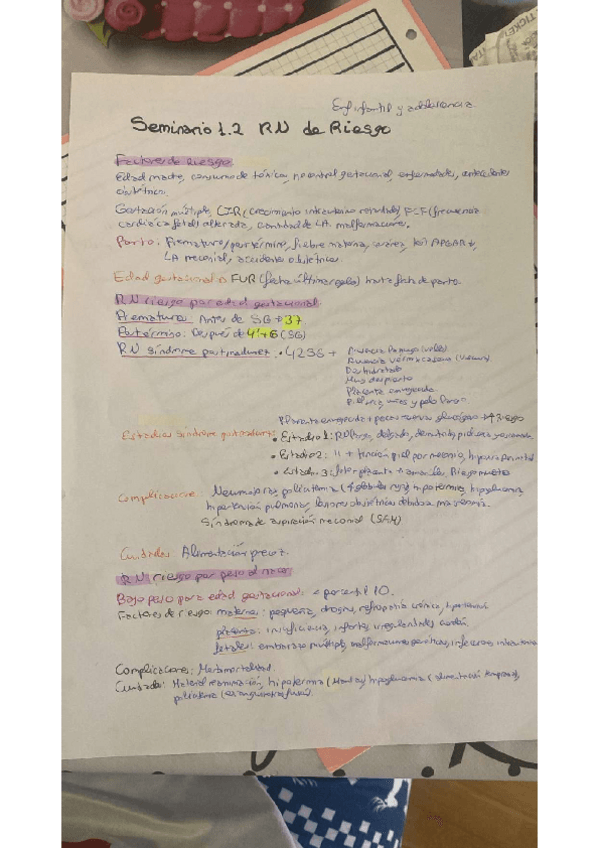 Enf infantil y adolescencia
Seminario 1.2 RN de Riesgo
Factores de riesgo
Edad madre, consumo de tóxicos, no control gestacional, enfermedades, antecedentes
Gestación múltiple, CIR (crecimiento intrauterino retardado), FCF (frecuencia
cardiaca fetal) alterada, cantidad de LA, malformaciones.
Parto: Prematuro/postérmino, fiebre materna, test APGAR ↓,
LA meconial, accidentes obstétricos
Edad gestacional → FUR (fecha última regla) hasta fecha de parto.
RN riesgo por edad gestacional
Prematuro: Antes de SG → 37
Postérmino: Después de 41+6 (SG)
RN síndrome postmadurez • 42SG +
Ausencia lanugo (vello)
Ausencia vérmix caseoso
Deshidratado
Muy despierto
Placenta envejecida
Placenta envejecida + pocas reservas glucógeno → ↑ riesgo
Estadios síndrome postmadurez: • Estadio 1: RN largo, delgado,
• Estadio 2: 11 + tinción piel por meconio, hipoxia perinatal
• Estadio 3: Riesgo muerte
Complicaciones: Neumotórax, policitemia hipotermia, hipoglucemia,
hipertensión pulmonar, lesiones obstétricas debidas a macrosomía.
Síndrome de aspiración meconial (SAM)
Cuidados Alimentación precoz.
RN riesgo por peso al nacer
Bajo peso para edad gestacional: < percentil 10.
Factores de riesgo: materna: pequeña, drogas, nefropatía crónica, hipertensión
placenta: insuficiencia, infartos, irregularidades cordón.
fetales: embarazo múltiple, malformaciones genéticas, infecciones intrauterinas
Complicaciones:
Cuidados: Material reanimación, hipotermia hipoglucemia (alimentación temprana),
policitemia